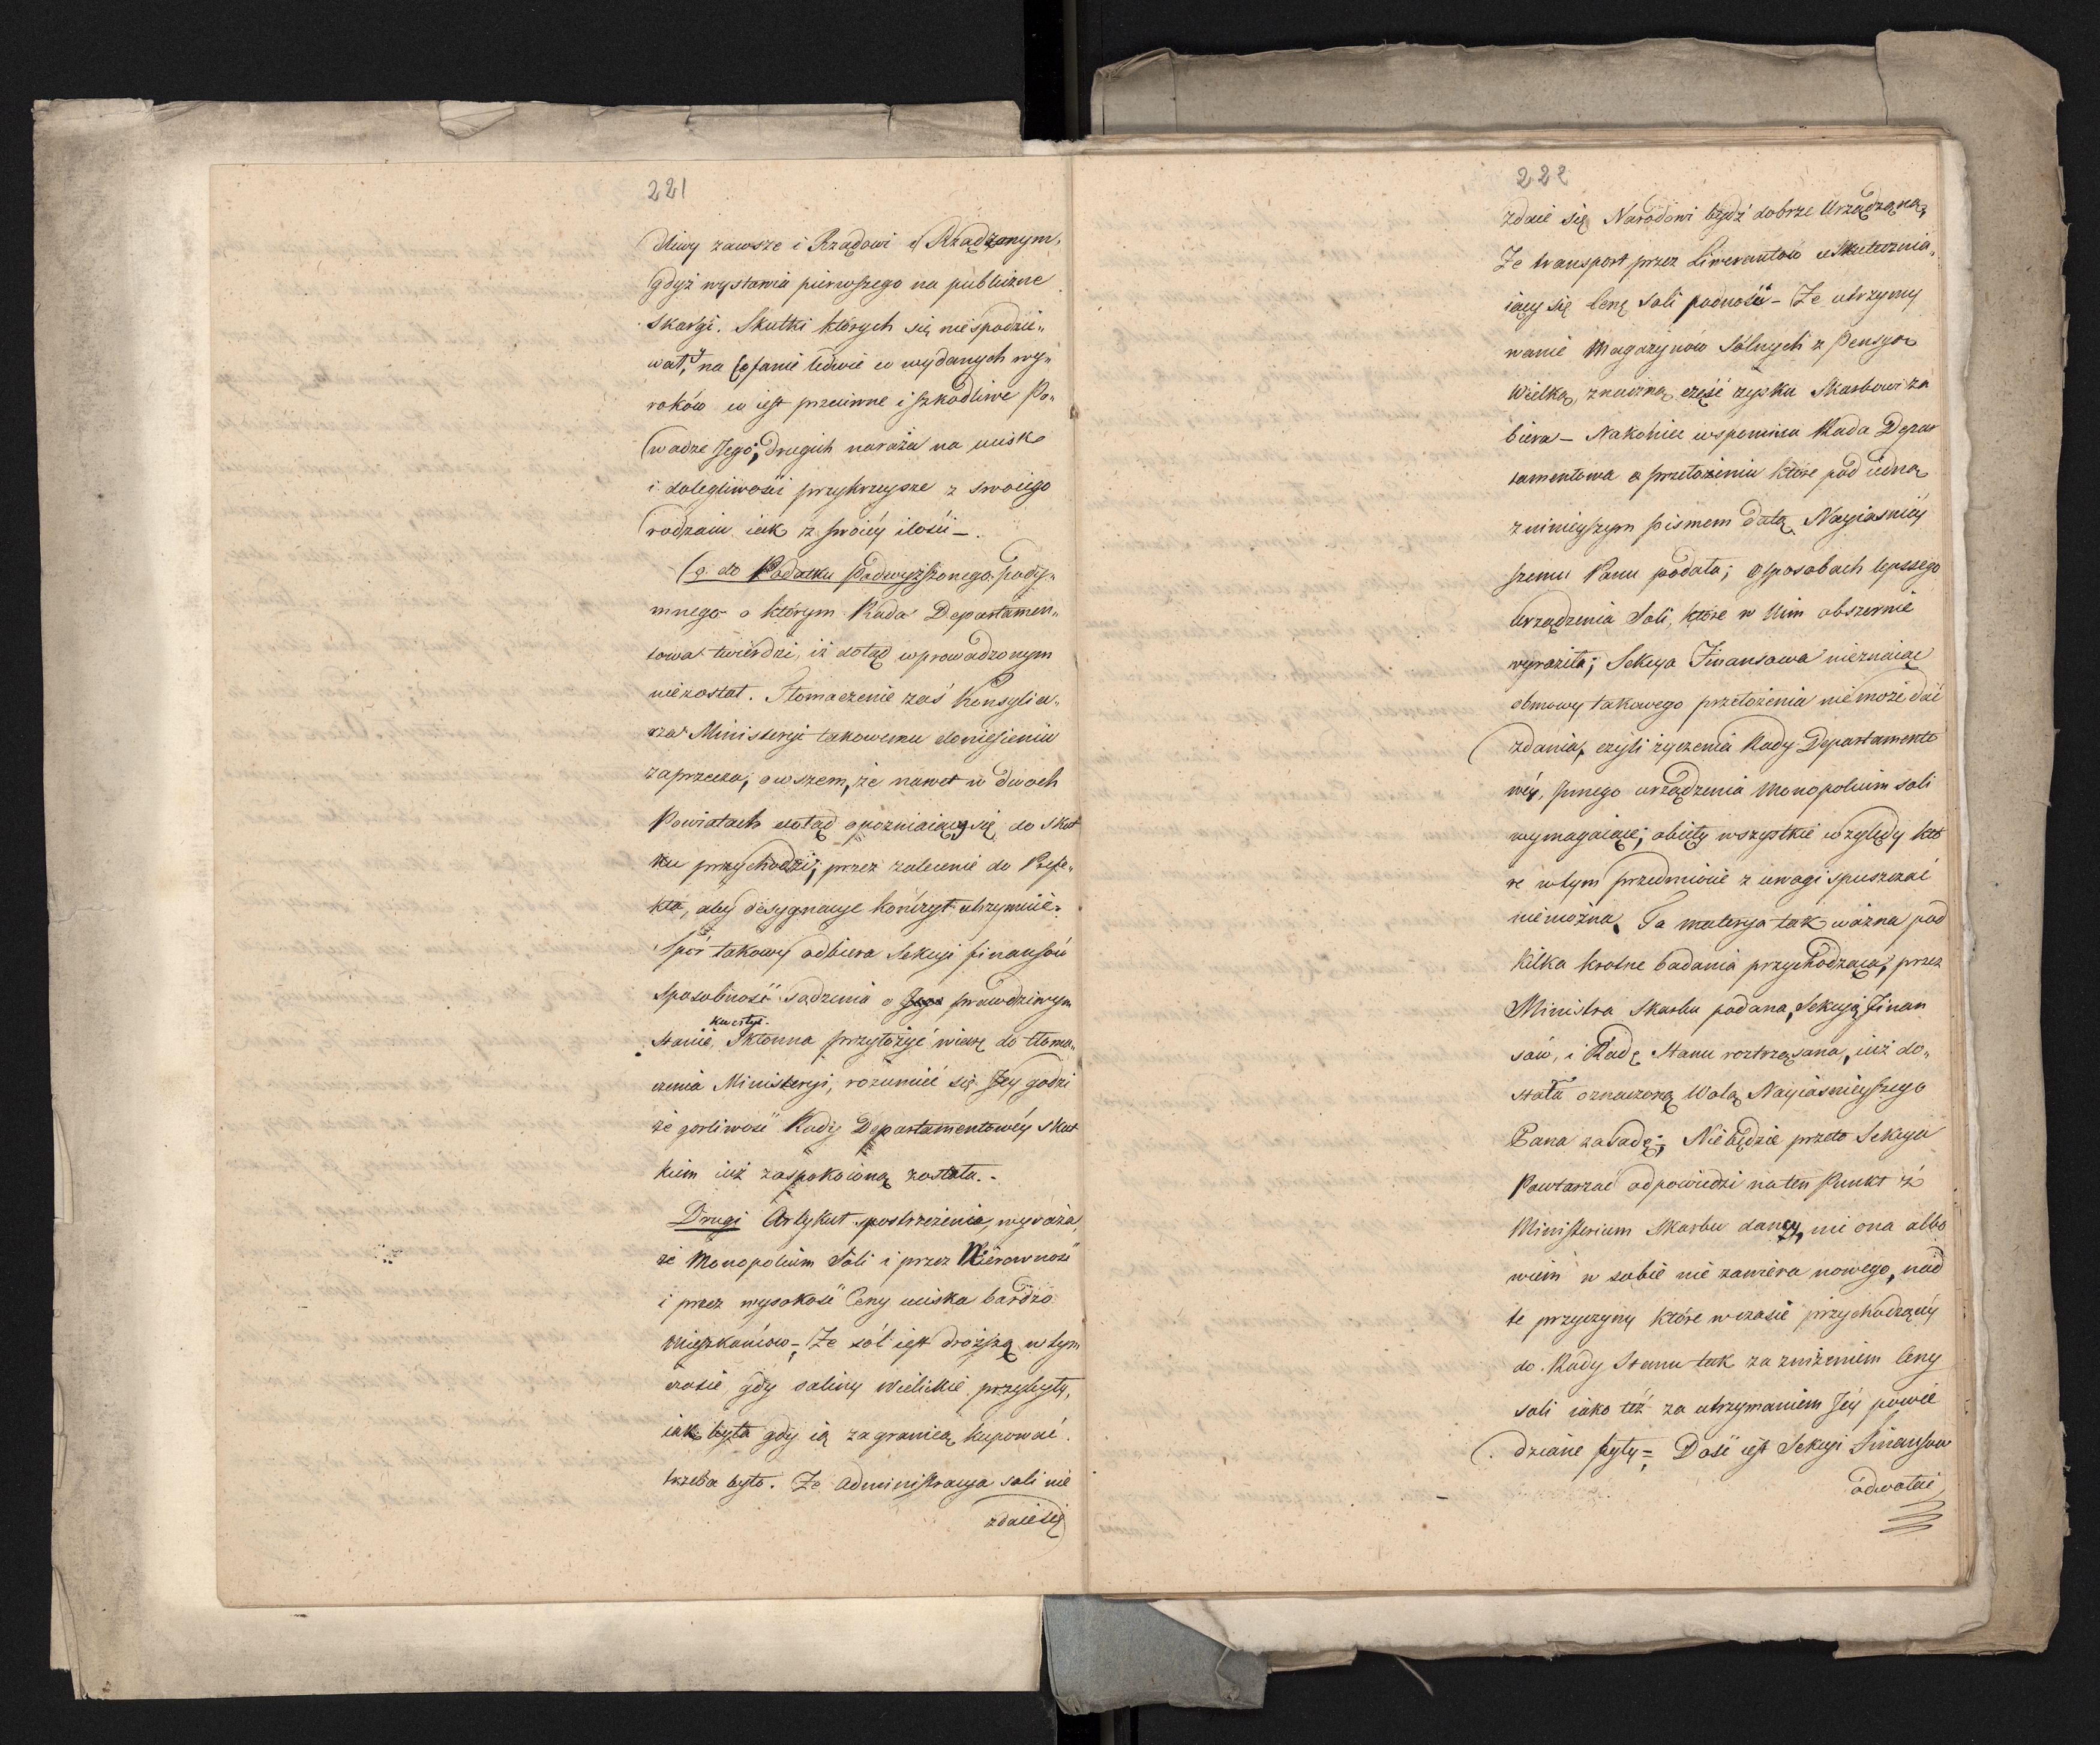 221
dliwy zawsze i Rządowi i Rządzonym,
gdyż wystawia pierwszego na publiczne
skargi. Skutki których się niespodzie„
wał, na Cofanie ledwie co wydanych wy„
roków co iest przeciwne i szkodliwe Po„
wadze Jego; drugich naraża na ucisk
i dolegliwości przykrzeysze z swoiego
rodzaiu iak z swoiéy ilości –.
Co do Podatku Podwyższonego pody„
mnego o którym Rada Departamen„
towa twierdzi, iż dotąd wprowadzonym
niezostał. Tłomaczenie zaś Konsylia„
rza Ministeryi takowemu doniesieniu
zaprzecza; owszem, że nawet w dwoch
Powiatach dotąd opozniaiący się do skut
ku przychodzi; przez zalecenie do Prefe„
kta, aby desygnacye kończył utrzymuie.
Spór takowy odbiera Sekcyi finansów
sposobność sądzenia o prawdziwym
kwestyi.
stanie, Skłonna przyłożyć wiarę do tłoma„
czenia Ministeryi, rozumieć się Jey godzi
że gorliwość Rady Departamentowéy skut
kiem iuż zaspokoioną została. -
Drugi Artykuł spostrzeżenia wyraża,
że Monopolium Soli i przez Nierowność
i przez wysokość Ceny uciska bardzo
Mieszkańców – Że sól iest droższą w tym
czasie, gdy saliny Wielickie przybyły,
iak była gdy ią zagranicą kupować
trzeba było. Że administracya soli nie
zdaie się
222
zdaie się Narodowi bydź dobrze Urządzoną,
Że transport przez Liwerantów uskutecznia„
iący się Cenę Soli podnosi – Że utrzymy
wanie Magazynów Solnych z Pensyą
Wielką, znaczną część zysku Skarbowi za
biera – Nakoniec wspomina Rada Depar
tamentowa o przełożeniu które pod iedną
z ninieyszym pismem datą Nayiaśniéy
szemu Panu podała; o sposobach lepszego
Urządzenia Soli, które w Nim obszernie
wyraziła; Sekcya Finansowa nieznaiąc
osnowy takowego przełożenia nie może dać
zdania, czyli życzenia Rady Departamento
wéy, innego urządzenia Monopolium soli
wymagaiące; obięły wszystkie względy któ
re w tym przedmiocie z uwagi spuszczać
nie można. Ta materya tak ważna pod
kilka krotne badania przychodząca, przez
Ministra Skarbu podana, Sekcyą Finan
sów, i Radę Stanu roztrząsana, iuż do„
stała oznaczoną Wolą Nayiaśnieyszego
Pana zasadę; Nie będzie przeto Sekcya
Powtarzać odpowiedzi na ten Punkt z
Ministerium Skarbu daney, nie ona albo
wiem w sobie nie zawiera nowego, nad
te przyczyny które w czasie przychodzącéy
do Rady Stanu tak za zniżeniem Ceny
soli iako też za utrzymaniem Jéy powie
dziane były = Dość iest Sekcyi Finansów
odwołać